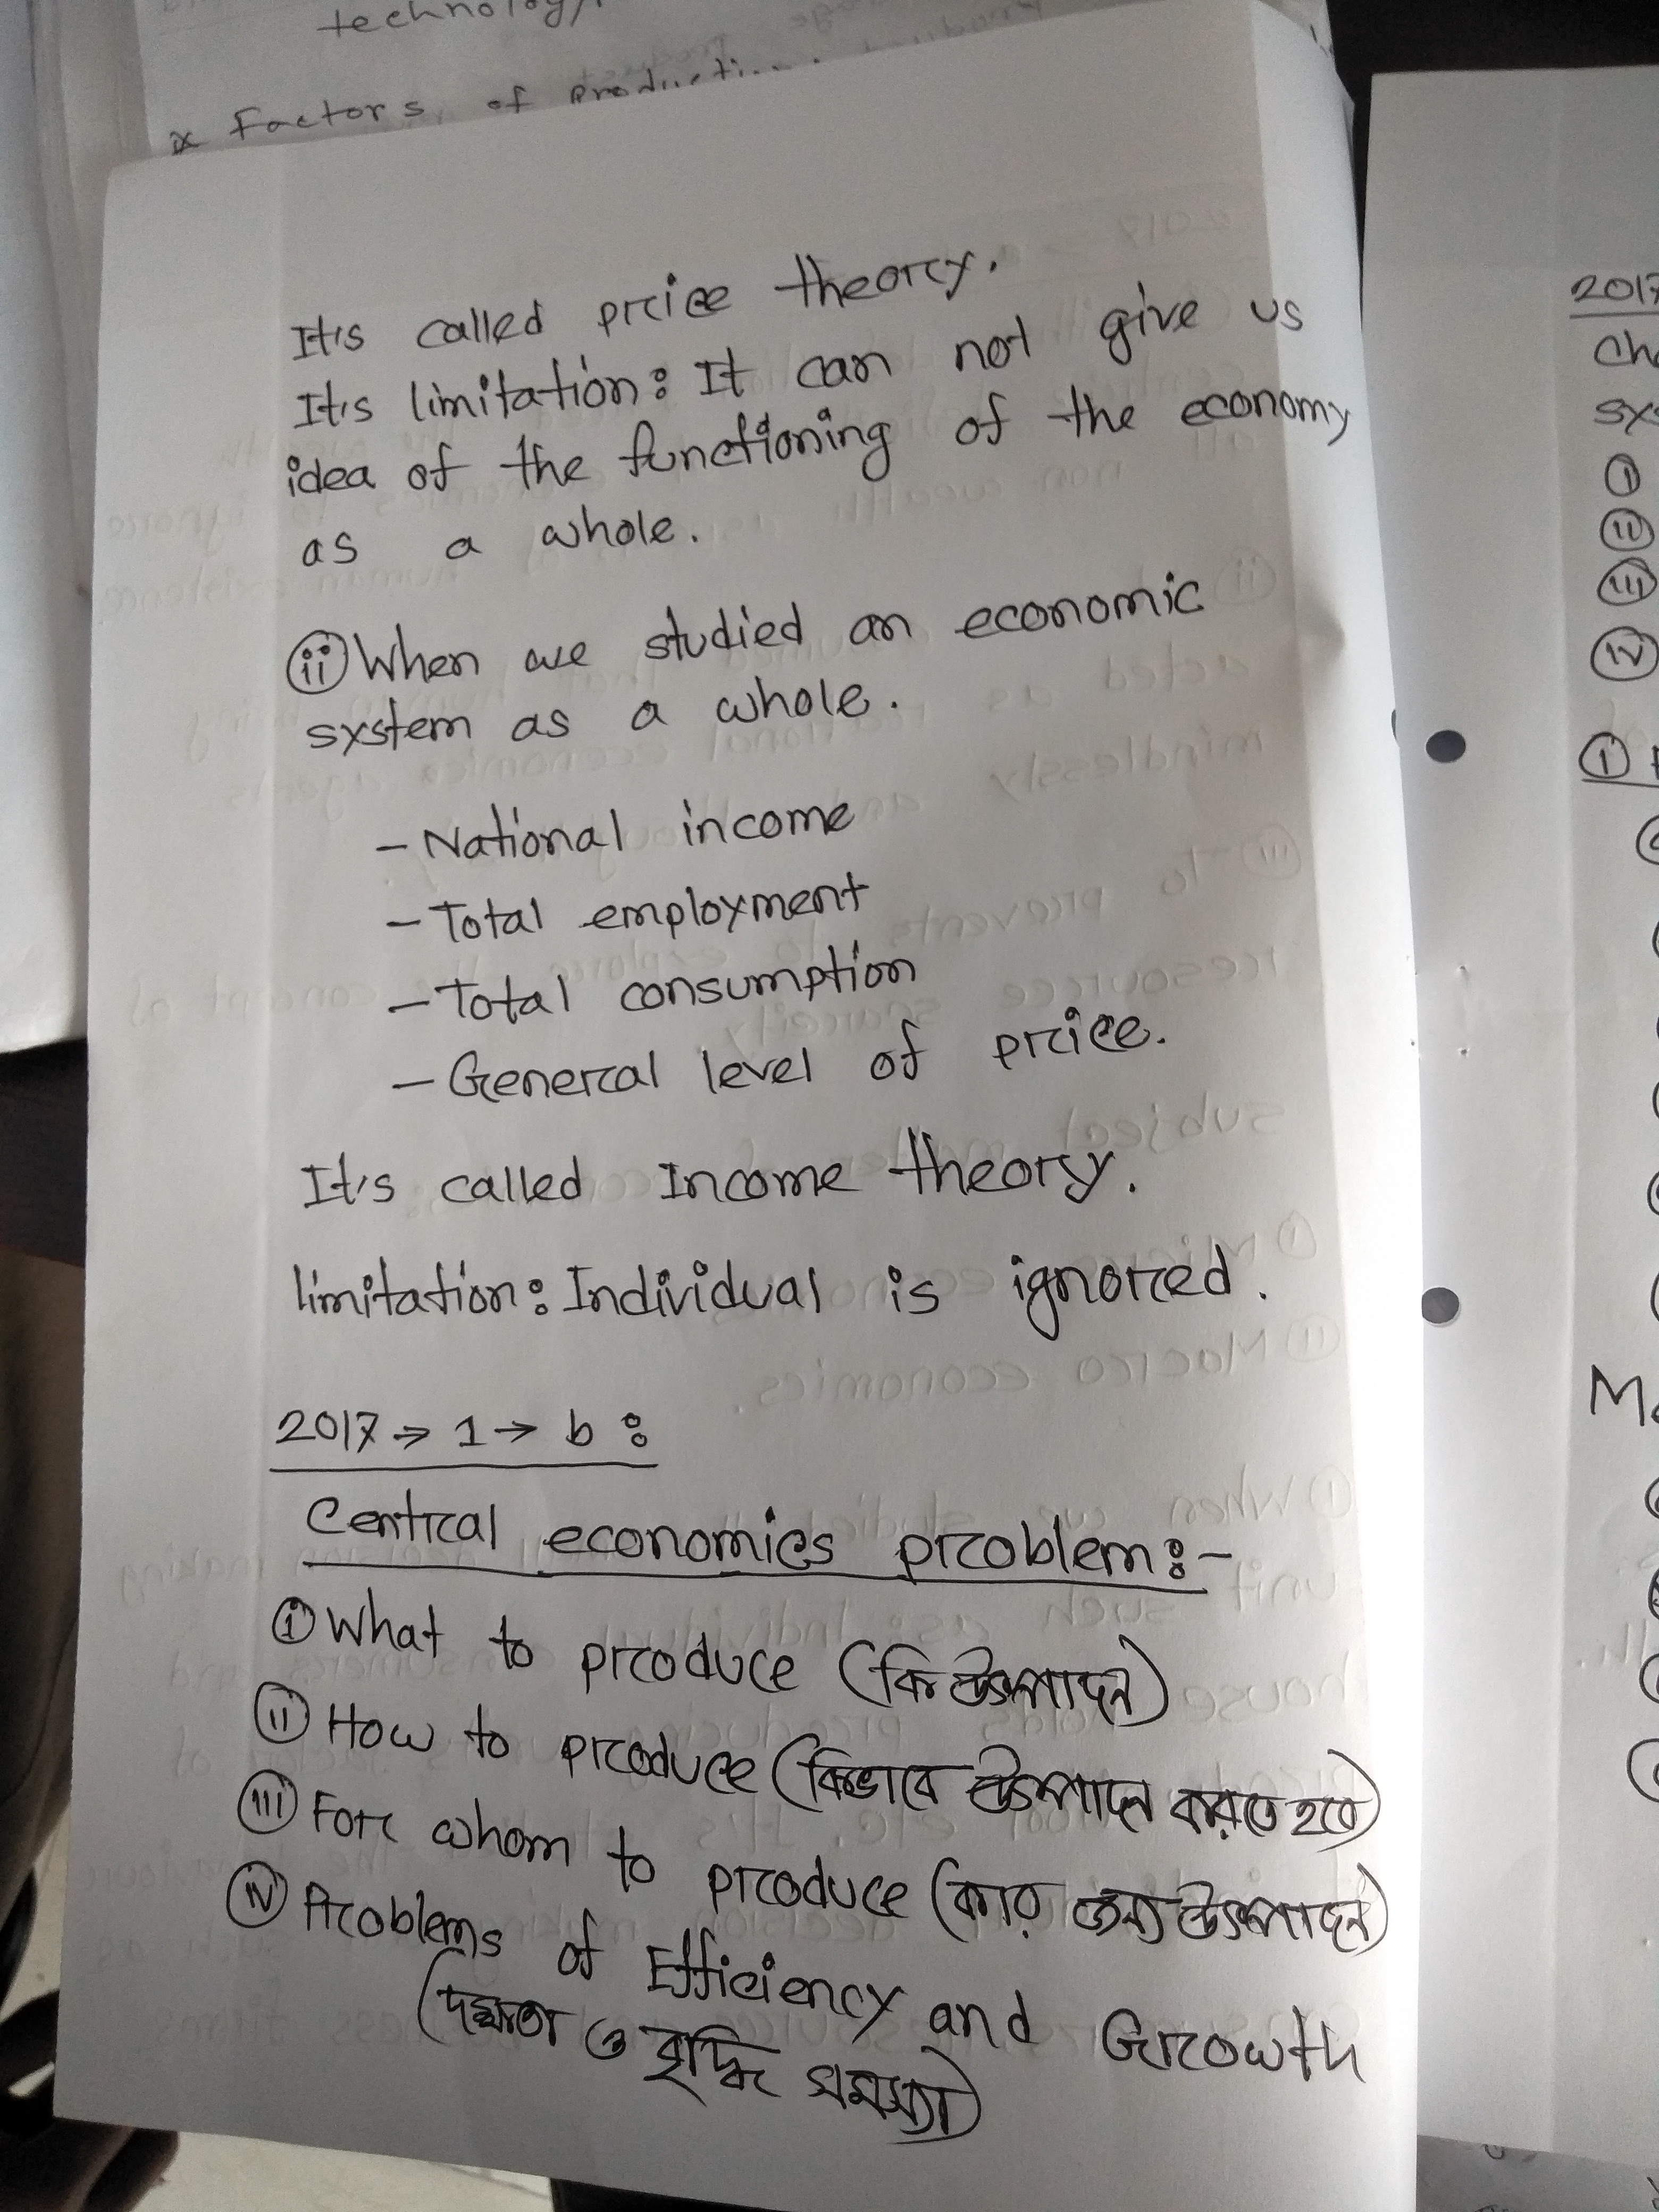 technology
× Factors of Production
It's called price theory.
It's limitation: It can not give us
idea of the functioning of the economy
as a whole.
(ii) When we studied an economic
system as a whole.
- National income
- Total employment
- Total consumption
- General level of price.
It's called Income theory.
limitation: Individual is ignored.
2017 → 1 → b :
Central economics problem:-
(i) What to produce (কি উৎপাদন)
(ii) How to produce (কিভাবে উৎপাদন করতে হবে)
(iii) For whom to produce (কার জন্য উৎপাদন)
(iv) Problems of Efficiency and Growth
(দক্ষতা ও বৃদ্ধি সমস্যা)
2017
(i)
(ii)
(iii)
(iv)
(i)